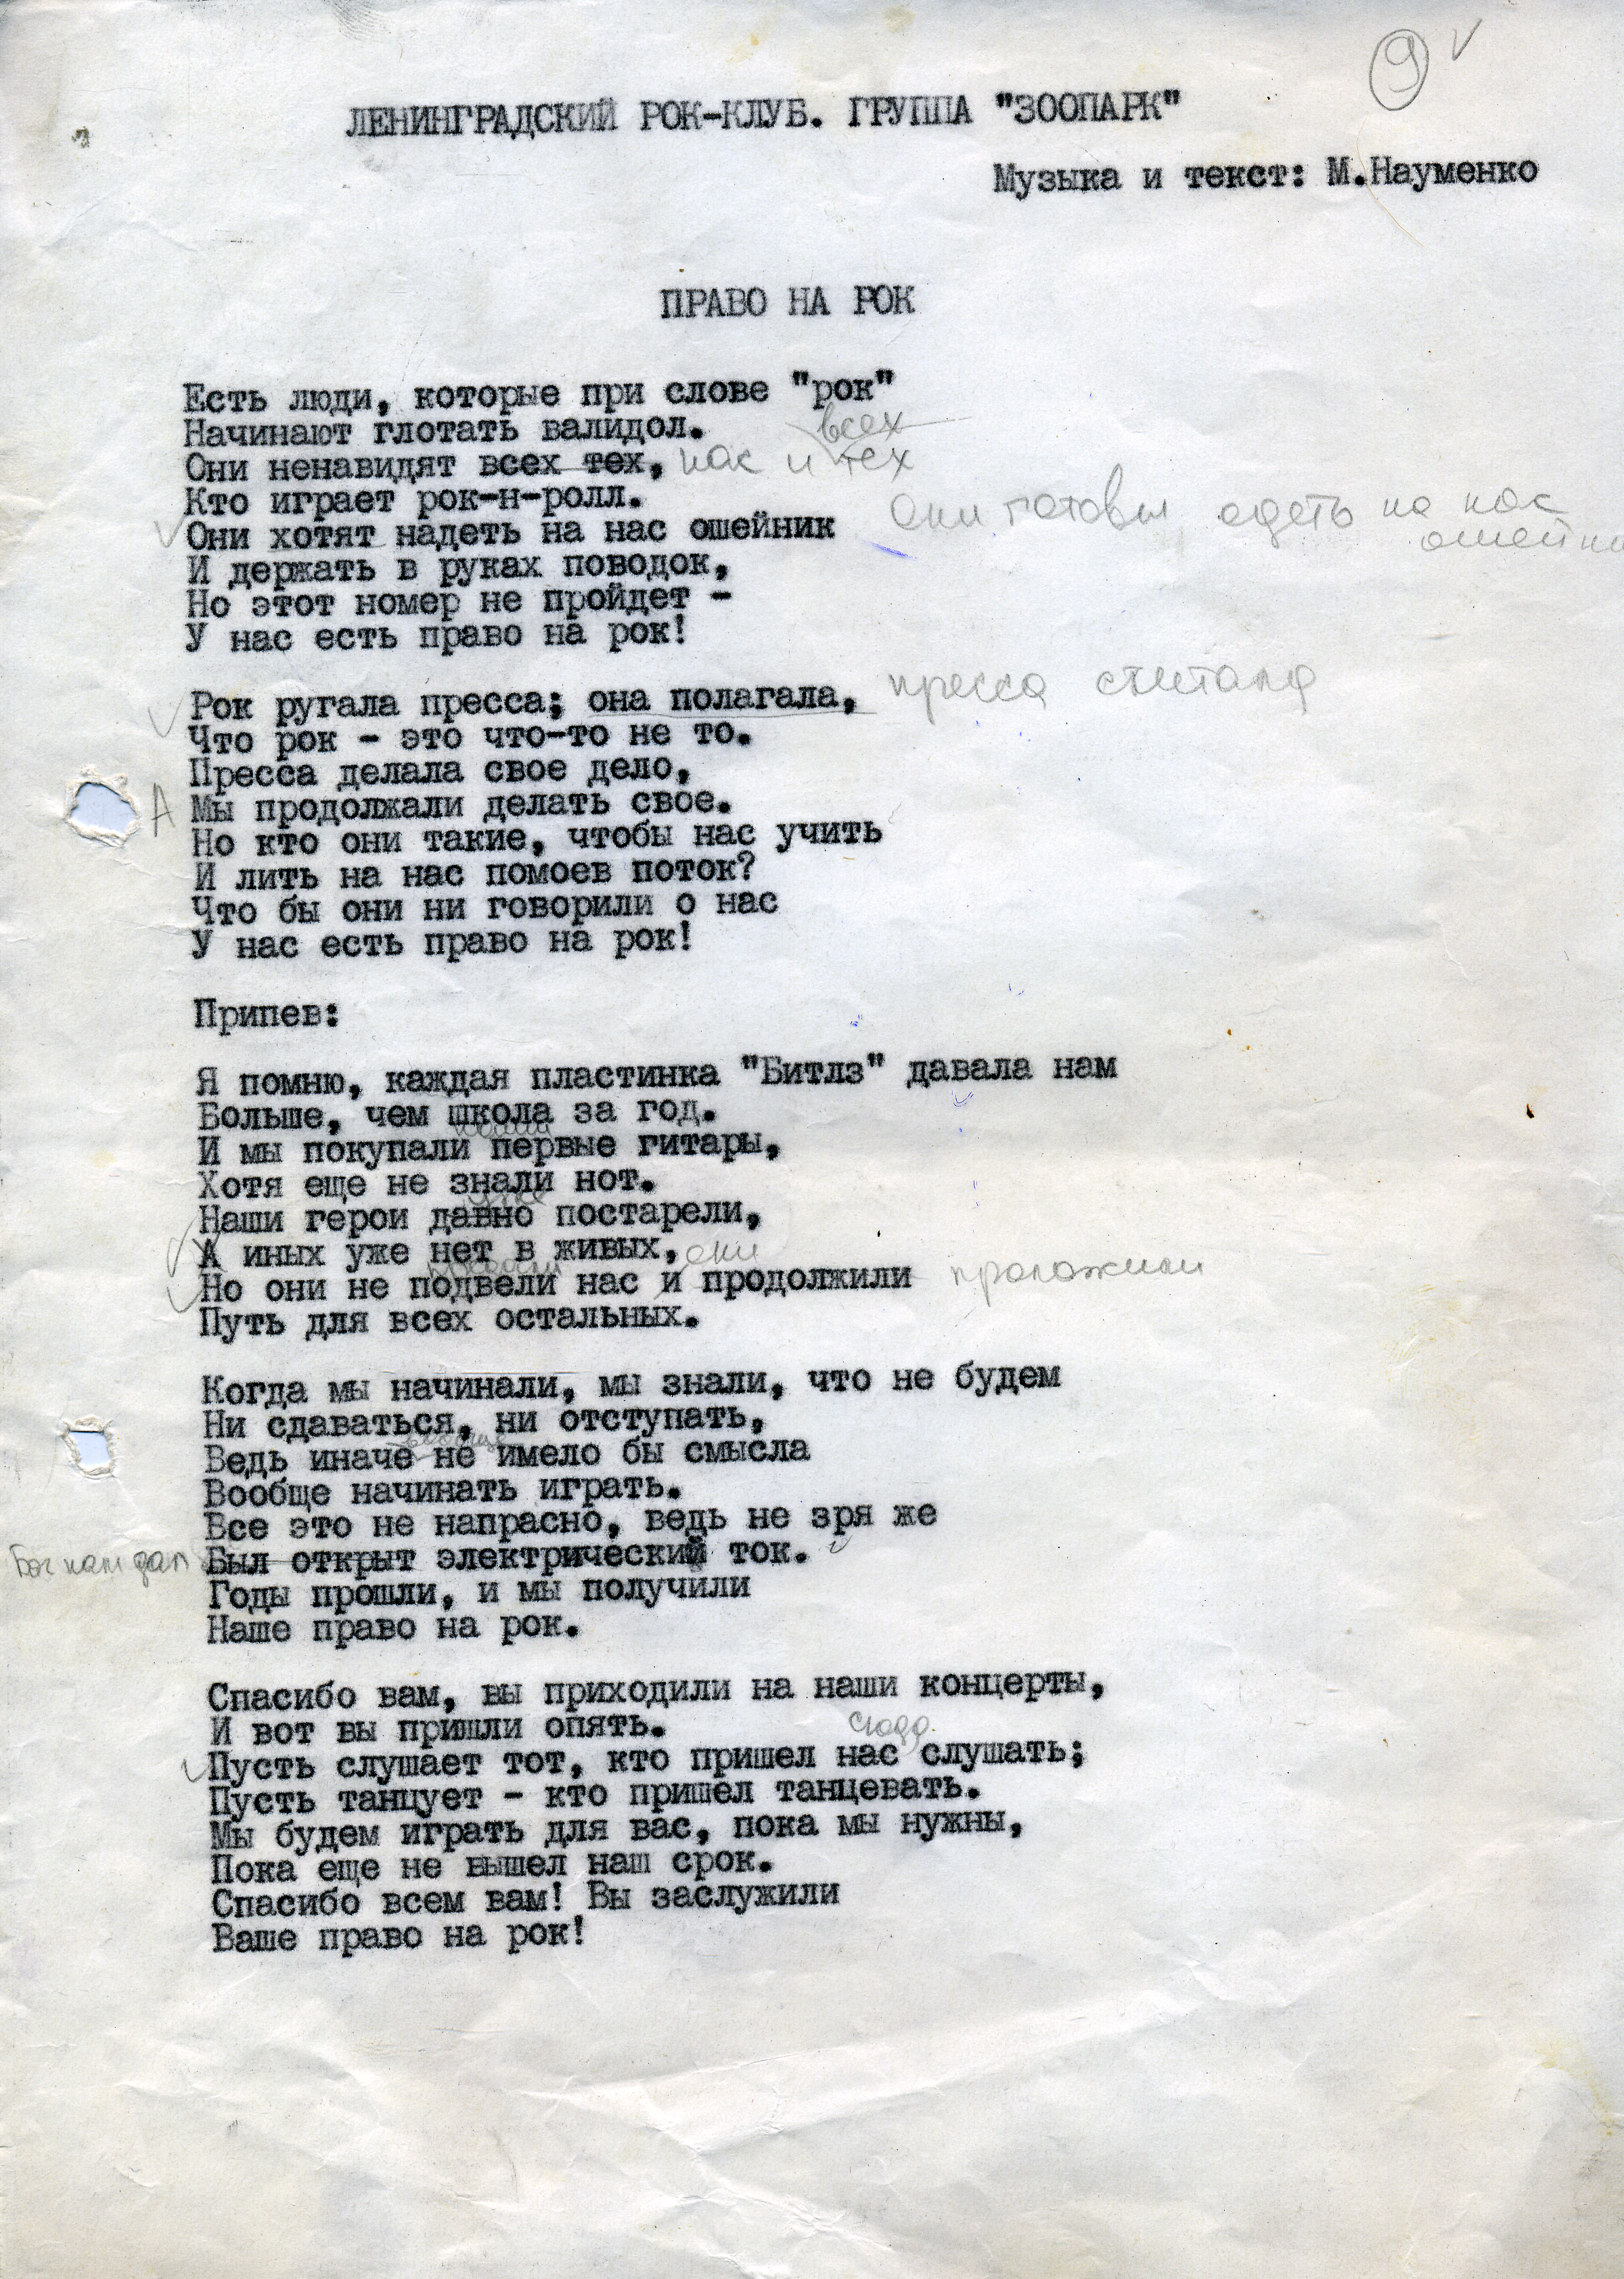 9
ЛЕНИНГРАДСКИЙ РОК-КЛУБ. ГРУППА "ЗООПАРК"
Музыка и текст: М.Науменко
ПРАВО НА РОК
Есть люди, которые при слове "рок"
Начинают глотать валидол.
всех
Они ненавидят всех тех, как и тех
Кто играет рок-н-ролл.
Они хотят надеть на нас ошейник Они готовы одеть на нас
И держать в руках поводок,
Но этот номер не пройдет -
У нас есть право на рок!
Рок ругала пресса; она полагала, пресса считала
Что рок - это что-то не то.
Пресса делала свое дело,
А Мы продолжали делать свое.
Но кто они такие, чтобы нас учить
И лить на нас помоев поток?
Что бы они ни говорили о нас
У нас есть право на рок!
Припев:
Я помню, каждая пластинка "Битлз" давала нам
Больше, чем школа за год.
И мы покупали первые гитары,
Хотя еще не знали нот.
уже
Наши герои давно постарели,
А иных уже нет в живых, они
Но они не подвели нас и продолжили проложили
Путь для всех остальных.
Когда мы начинали, мы знали, что не будем
Ни сдаваться, ни отступать,
вообще
Ведь иначе не имело бы смысла
Вообще начинать играть.
Все это не напрасно, ведь не зря же
Бог нам дал Был открыт электрический ток.
Годы прошли, и мы получили
Наше право на рок.
Спасибо вам, вы приходили на наши концерты,
И вот вы пришли опять.
сюда
Пусть слушает тот, кто пришел нас слушать;
Пусть танцует - кто пришел танцевать.
Мы будем играть для вас, пока мы нужны,
Пока еще не вышел наш срок.
Спасибо всем вам! Вы заслужили
Ваше право на рок!